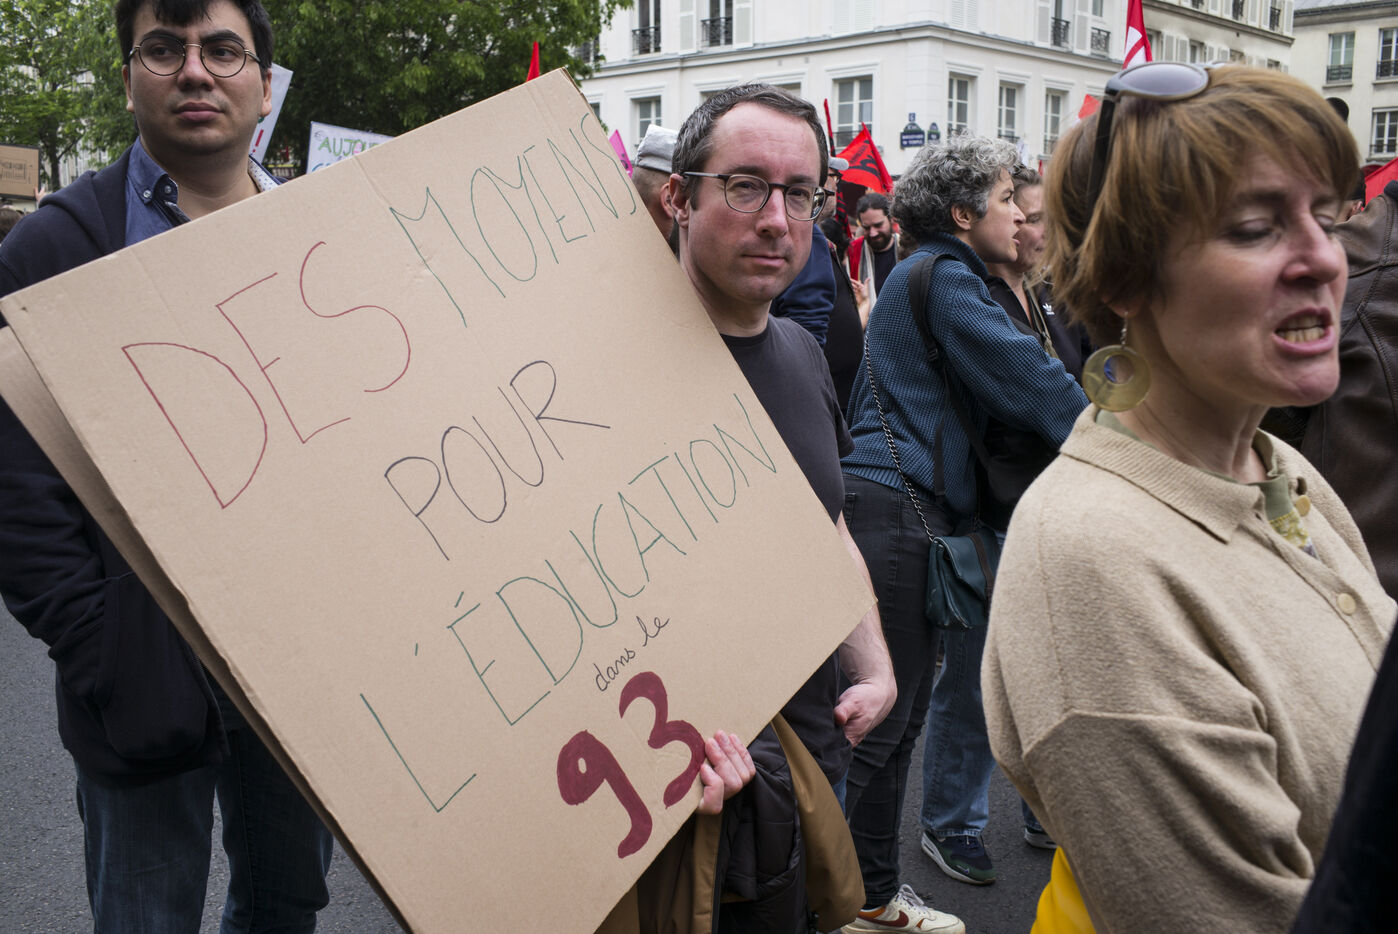 DES MOYENS
POUR
L'ÉDUCATION
dans le
93
AUJO